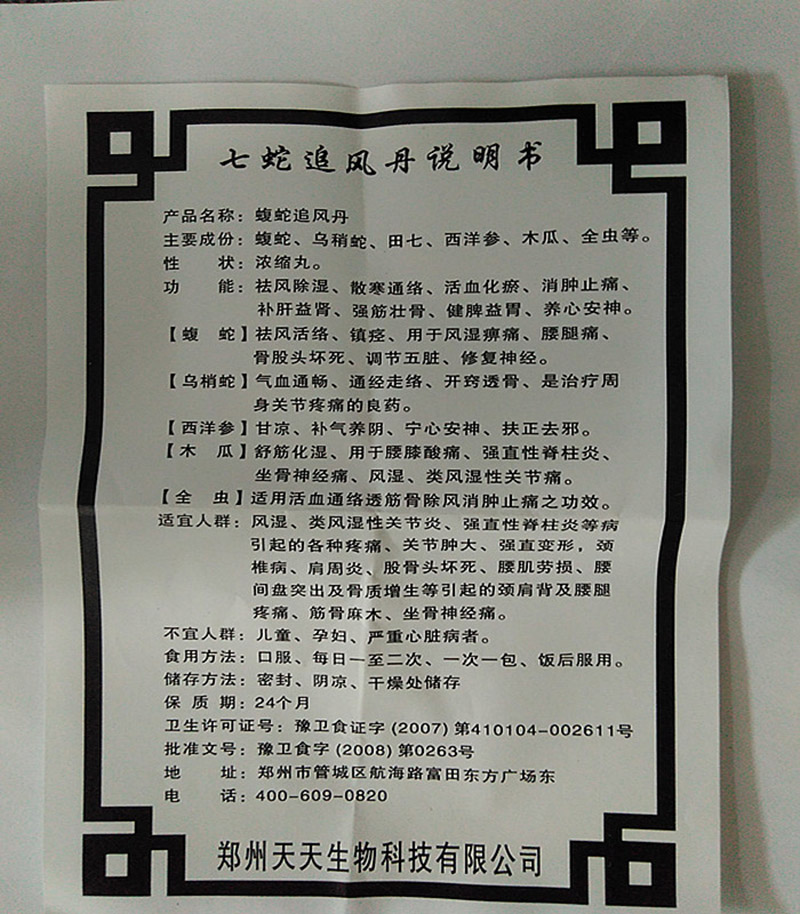 七蛇追风丹说明书
产品名称：蝮蛇追风丹
主要成份：蝮蛇、乌稍蛇、田七、西洋参、木瓜、全虫等。
性 状：浓缩丸。
功 能：祛风除湿、散寒通络、活血化瘀、消肿止痛、
补肝益肾、强筋壮骨、健脾益胃、养心安神。
【蝮 蛇】祛风活络、镇痉、用于风湿痹痛、腰腿痛、
骨股头坏死、调节五脏、修复神经。
【乌梢蛇】气血通畅、通经走络、开窍透骨、是治疗周
身关节疼痛的良药。
【西洋参】甘凉、补气养阴、宁心安神、扶正去邪。
【木 瓜】舒筋化湿、用于腰膝酸痛、强直性脊柱炎、
坐骨神经痛、风湿、类风湿性关节痛。
【全 虫】适用活血通络透筋骨除风消肿止痛之功效。
适宜人群：风湿、类风湿性关节炎、强直性脊柱炎等病
引起的各种疼痛、关节肿大、强直变形，颈
椎病、肩周炎、股骨头坏死、腰肌劳损、腰
间盘突出及骨质增生等引起的颈肩背及腰腿
疼痛、筋骨麻木、坐骨神经痛。
不宜人群：儿童、孕妇、严重心脏病者。
食用方法：口服、每日一至二次、一次一包、饭后服用。
储存方法：密封、阴凉、干燥处储存
保 质 期：24个月
卫生许可证号：豫卫食证字(2007)第410104-002611号
批准文号：豫卫食字(2008)第0263号
地 址：郑州市管城区航海路富田东方广场东
电 话：400-609-0820
郑州天天生物科技有限公司